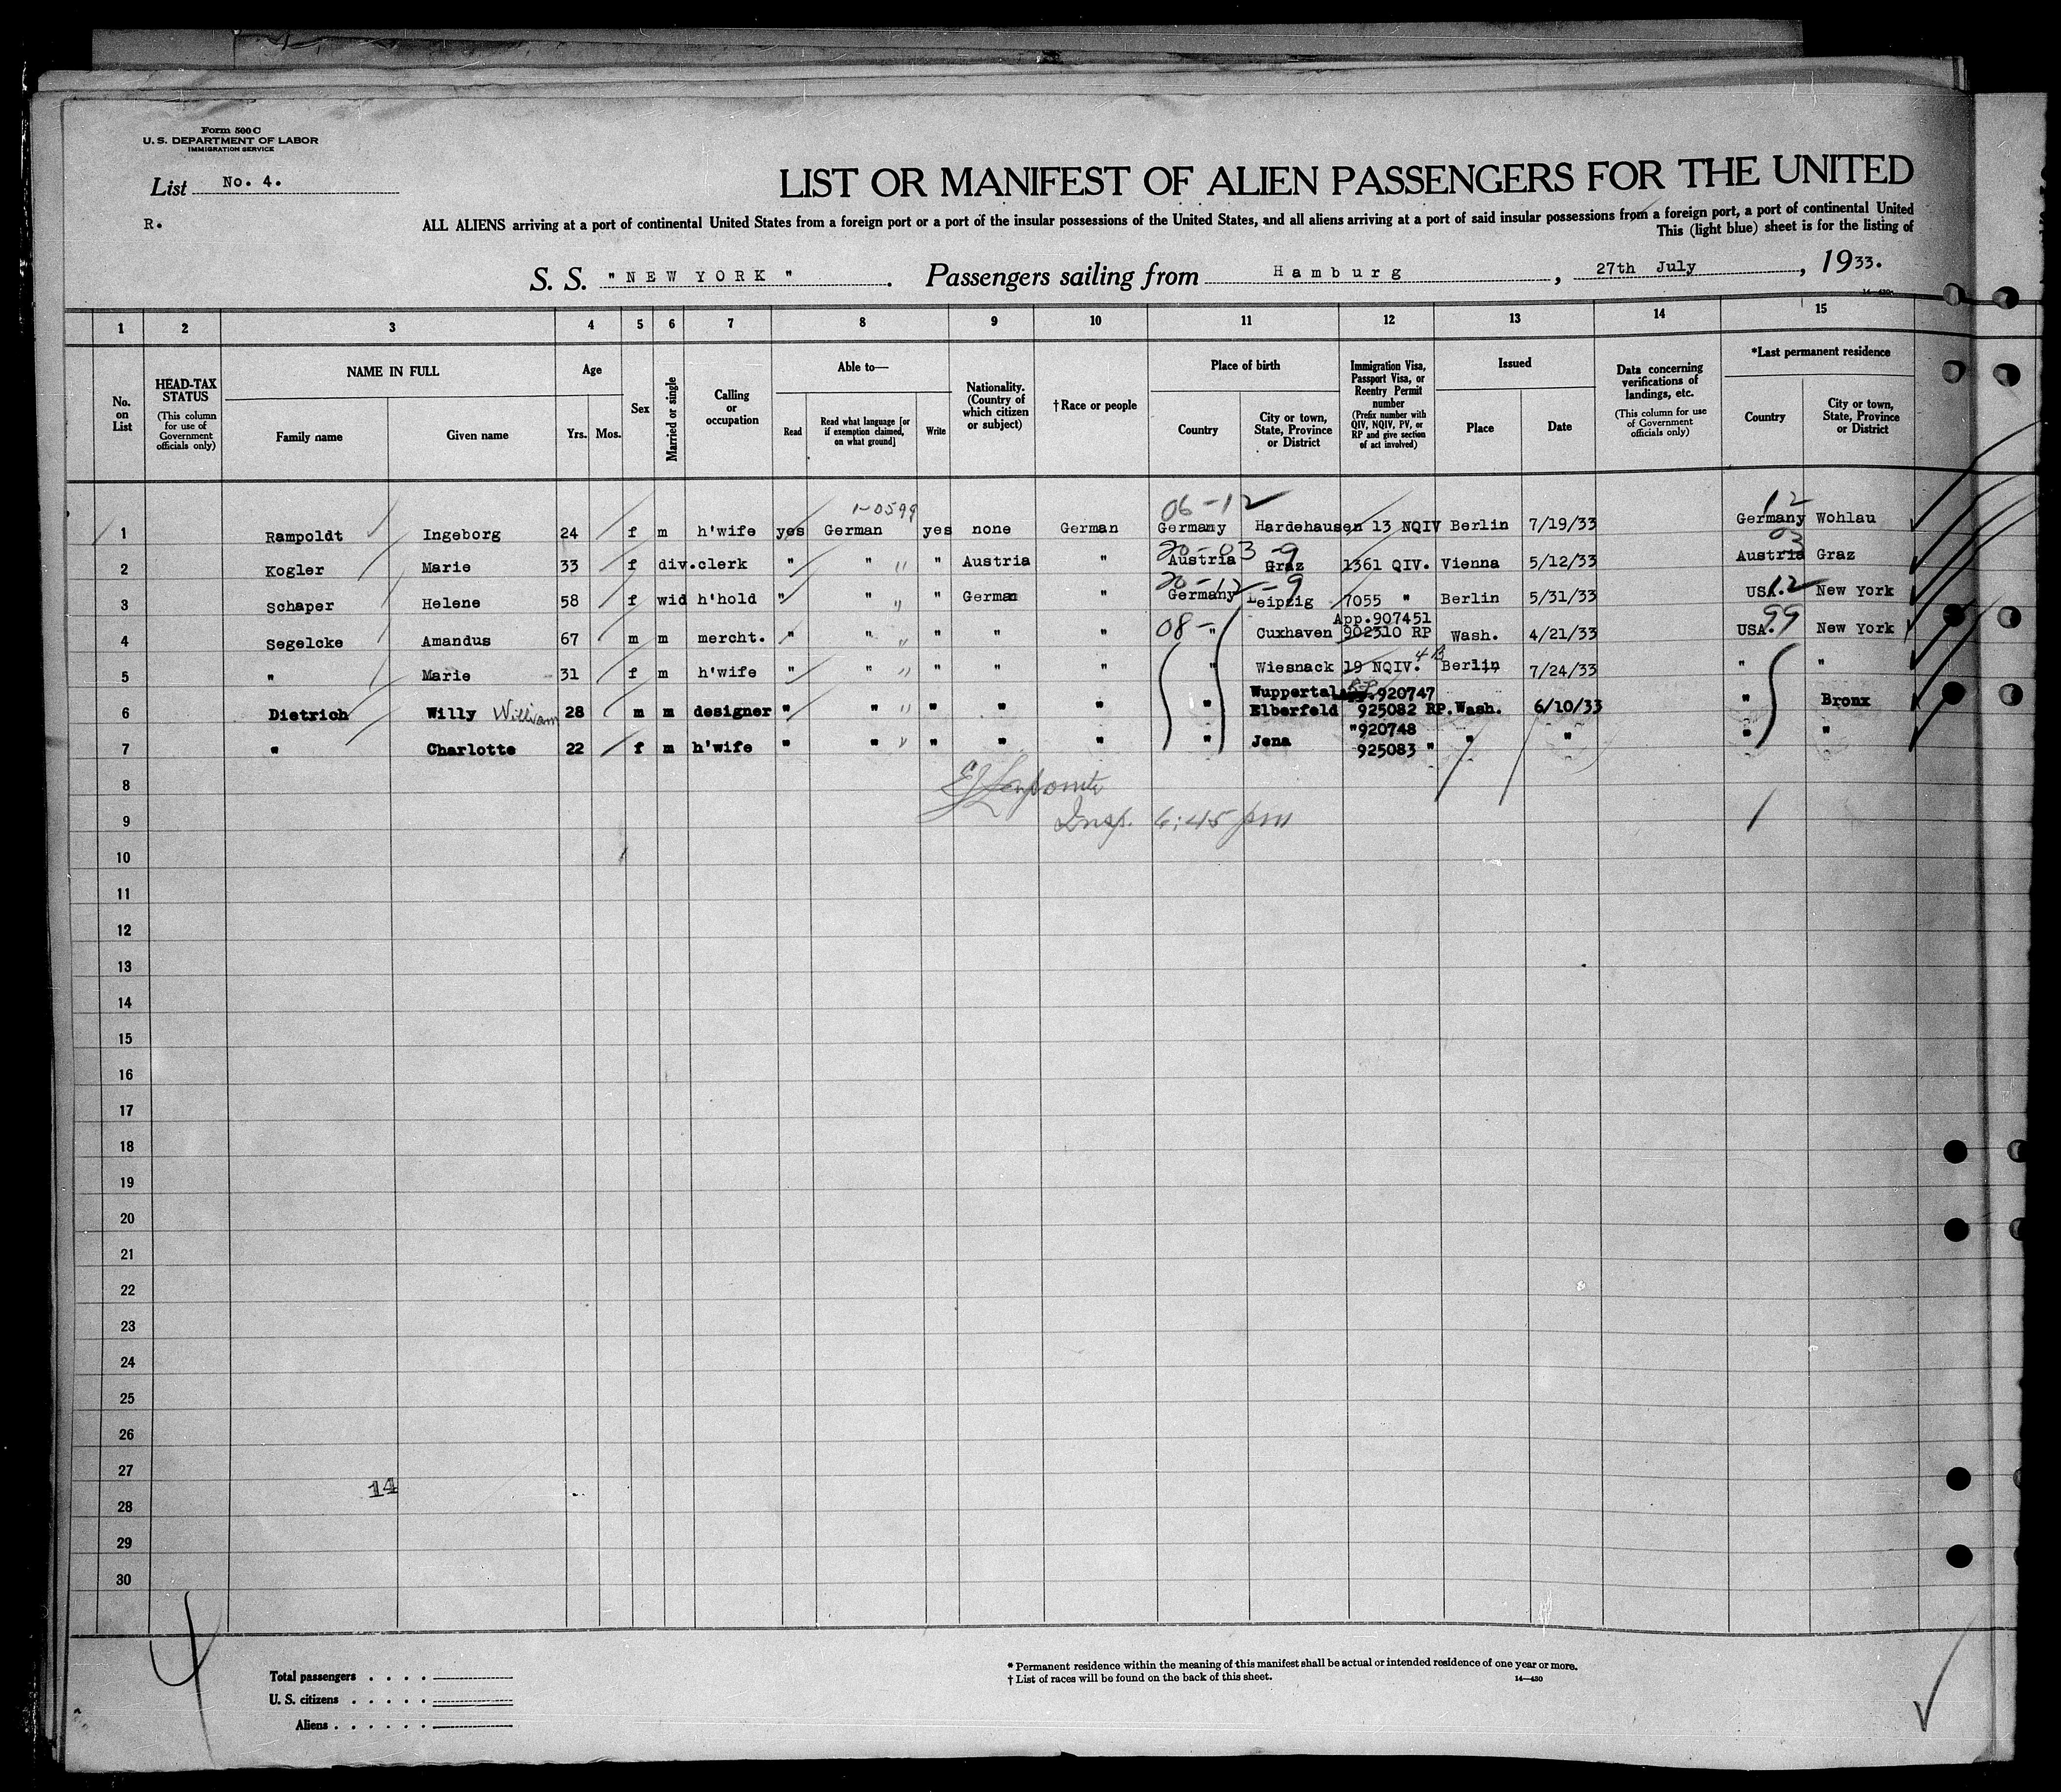 Form 500 C
U. S. DEPARTMENT OF LABOR
IMMIGRATION SERVICE
List No. 4.
R.
LIST OR MANIFEST OF ALIEN PASSENGERS FOR THE UNITED
ALL ALIENS arriving at a port of continental United States from a foreign port or a port of the insular possessions of the United States, and all aliens arriving at a port of said insular possessions from a foreign port, a port of continental United
This (light blue) sheet is for the listing of
S. S. "NEW YORK". Passengers sailing from Hamburg, 27th July, 1933.
14—430
1 2 3 4 5 6 7 8 9 10 11 12 13 14 15
No. on List
HEAD-TAX STATUS (This column for use of Government officials only)
NAME IN FULL
Family name Given name
Age
Yrs. Mos.
Sex
Married or single
Calling or occupation
Able to—
Read Read what language [or if exemption claimed, on what ground] Write
Nationality. (Country of which citizen or subject)
†Race or people
Place of birth
Country City or town, State, Province or District
Immigration Visa, Passport Visa, or Reentry Permit number (Prefix number with QIV, NQIV, PV, or RP and give section of act involved)
Issued
Place Date
Data concerning verifications of landings, etc. (This column for use of Government officials only)
*Last permanent residence
Country City or town, State, Province or District
1-0599 06-12 12
1 Rampoldt Ingeborg 24 f m h'wife yes German yes none German Germany Hardehausen 13 NQIV Berlin 7/19/33 Germany Wohlau
20-03-9 03
2 Kogler Marie 33 f div. clerk " " " Austria " Austria Graz 1361 QIV. Vienna 5/12/33 Austria Graz
20-12-9 12
3 Schaper Helene 58 f wid h'hold " " " German " Germany Leipzig 7055 " Berlin 5/31/33 USA. New York
08- App.907451 99
4 Segelcke Amandus 67 m m mercht. " " " " " " Cuxhaven 902310 RP Wash. 4/21/33 USA. New York
5 " Marie 31 f m h'wife " " " " " " Wiesnack 19 NQIV. 4B Berlin 7/24/33 " "
Wuppertal App.920747
6 Dietrich Willy William 28 m m designer " " " " " " Elberfeld 925082 RP. Wash. 6/10/33 " Bronx
"920748
7 " Charlotte 22 f m h'wife " " " " " " Jena 925083 " " " " "
8
9
Insp. 6:45 pm
10
11
12
13
14
15
16
17
18
19
20
21
22
23
24
25
26
27
14
28
29
30
4
Total passengers . . . .
U. S. citizens . . . . .
Aliens . . . . . .
* Permanent residence within the meaning of this manifest shall be actual or intended residence of one year or more.
† List of races will be found on the back of this sheet.
14—430